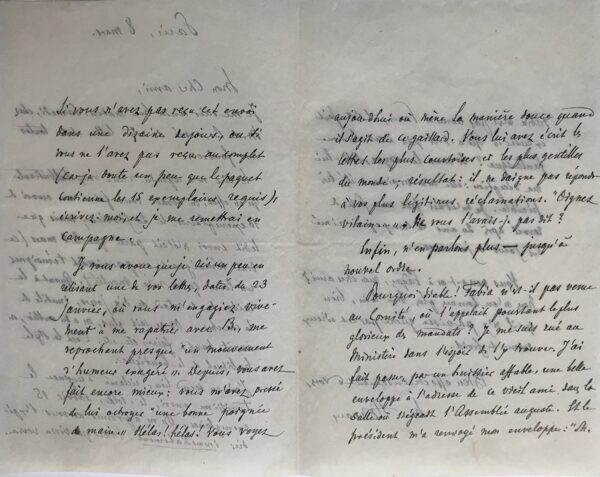 Paris, 8 mars.
Mon cher ami,
Si vous n'avez pas reçu cet envoi
dans une dizaine de jours, ou si
vous ne l'avez pas reçu au complet
(car je doute un peu que le paquet
contienne les 15 exemplaires requis),
écrivez-moi, et je me remettrai en
campagne.
Je vous avoue que je ris un peu en
relisant une de vos lettres, datée du 23
janvier, où vous m'engagiez vive-
ment à me rapatrier avec B., me
reprochant presque "un mouvement
d'humeur exagéré". Depuis, vous avez
fait encore mieux: vous m'avez pressé
de lui octroyer "une bonne poignée
de main." Hélas! hélas! Vous voyez
aujourdhui où mène la manière douce quand
il s'agit de ce gaillard. Vous lui avez écrit les
lettres les plus courtoises et les plus gentilles
du monde; résultat: il ne daigne pas répondre
à vos plus légitimes réclamations. "Oignez
vilain..." Ne vous l'avais-je pas dit?
Enfin, n'en parlons plus — jusqu'à
nouvel ordre.
Pourquoi diable! Fabia n'est-il pas venu
au Comité, où l'appelait pourtant le plus
glorieux des mandats? Je me suis rué au
Ministère dans l'espoir de l'y trouver. J'ai
fait passer par un huissier affable, une belle
enveloppe à l'adresse de ce vieil ami dans la
salle où siégeait l'Assemblée auguste. Et le
président m'a renvoyé mon enveloppe: "M.